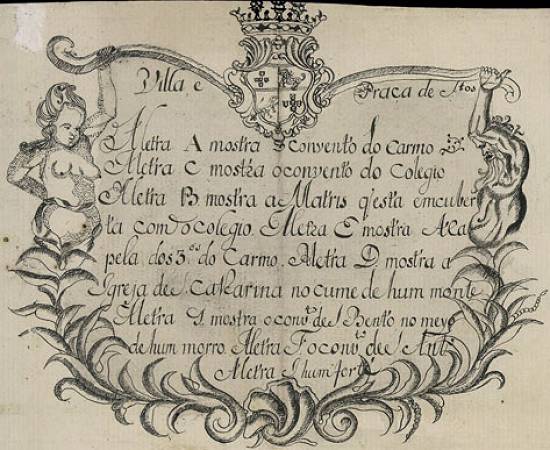 Villa, e Praca de Stos
Aletra A mostra o convento do Carmo
Aletra C mostra oconvento do Colegio
Aletra B mostra a Matris q'esta emcuber
ta com o colegio. Aletra E mostra A Ca
pela dos 3.os do Carmo. Aletra D mostra a
Igreja de S. Catharina nocume de hum monte
Aletra mostra o conv.to de S Bento no meyo
de hum morro. Aletra F o conv.to de S. Ant.
Aletra I hum forte